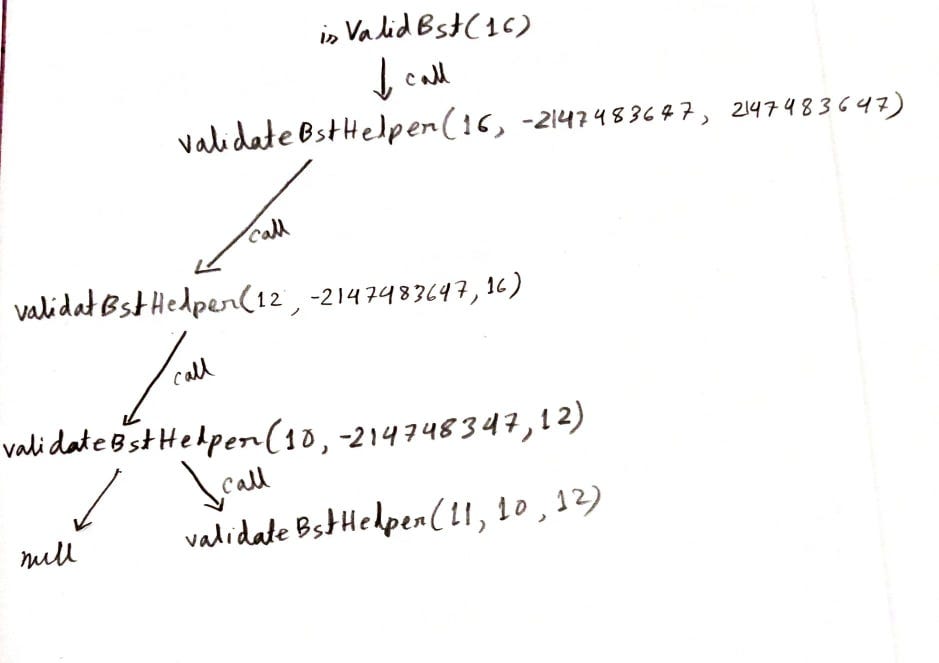 isValidBst(16)
call
validateBstHelper(16, -2147483647, 2147483647)
call
validatBstHelper(12, -2147483647, 16)
call
validateBstHelper(10, -214748347, 12)
call
validateBstHelper(11, 10, 12)
null